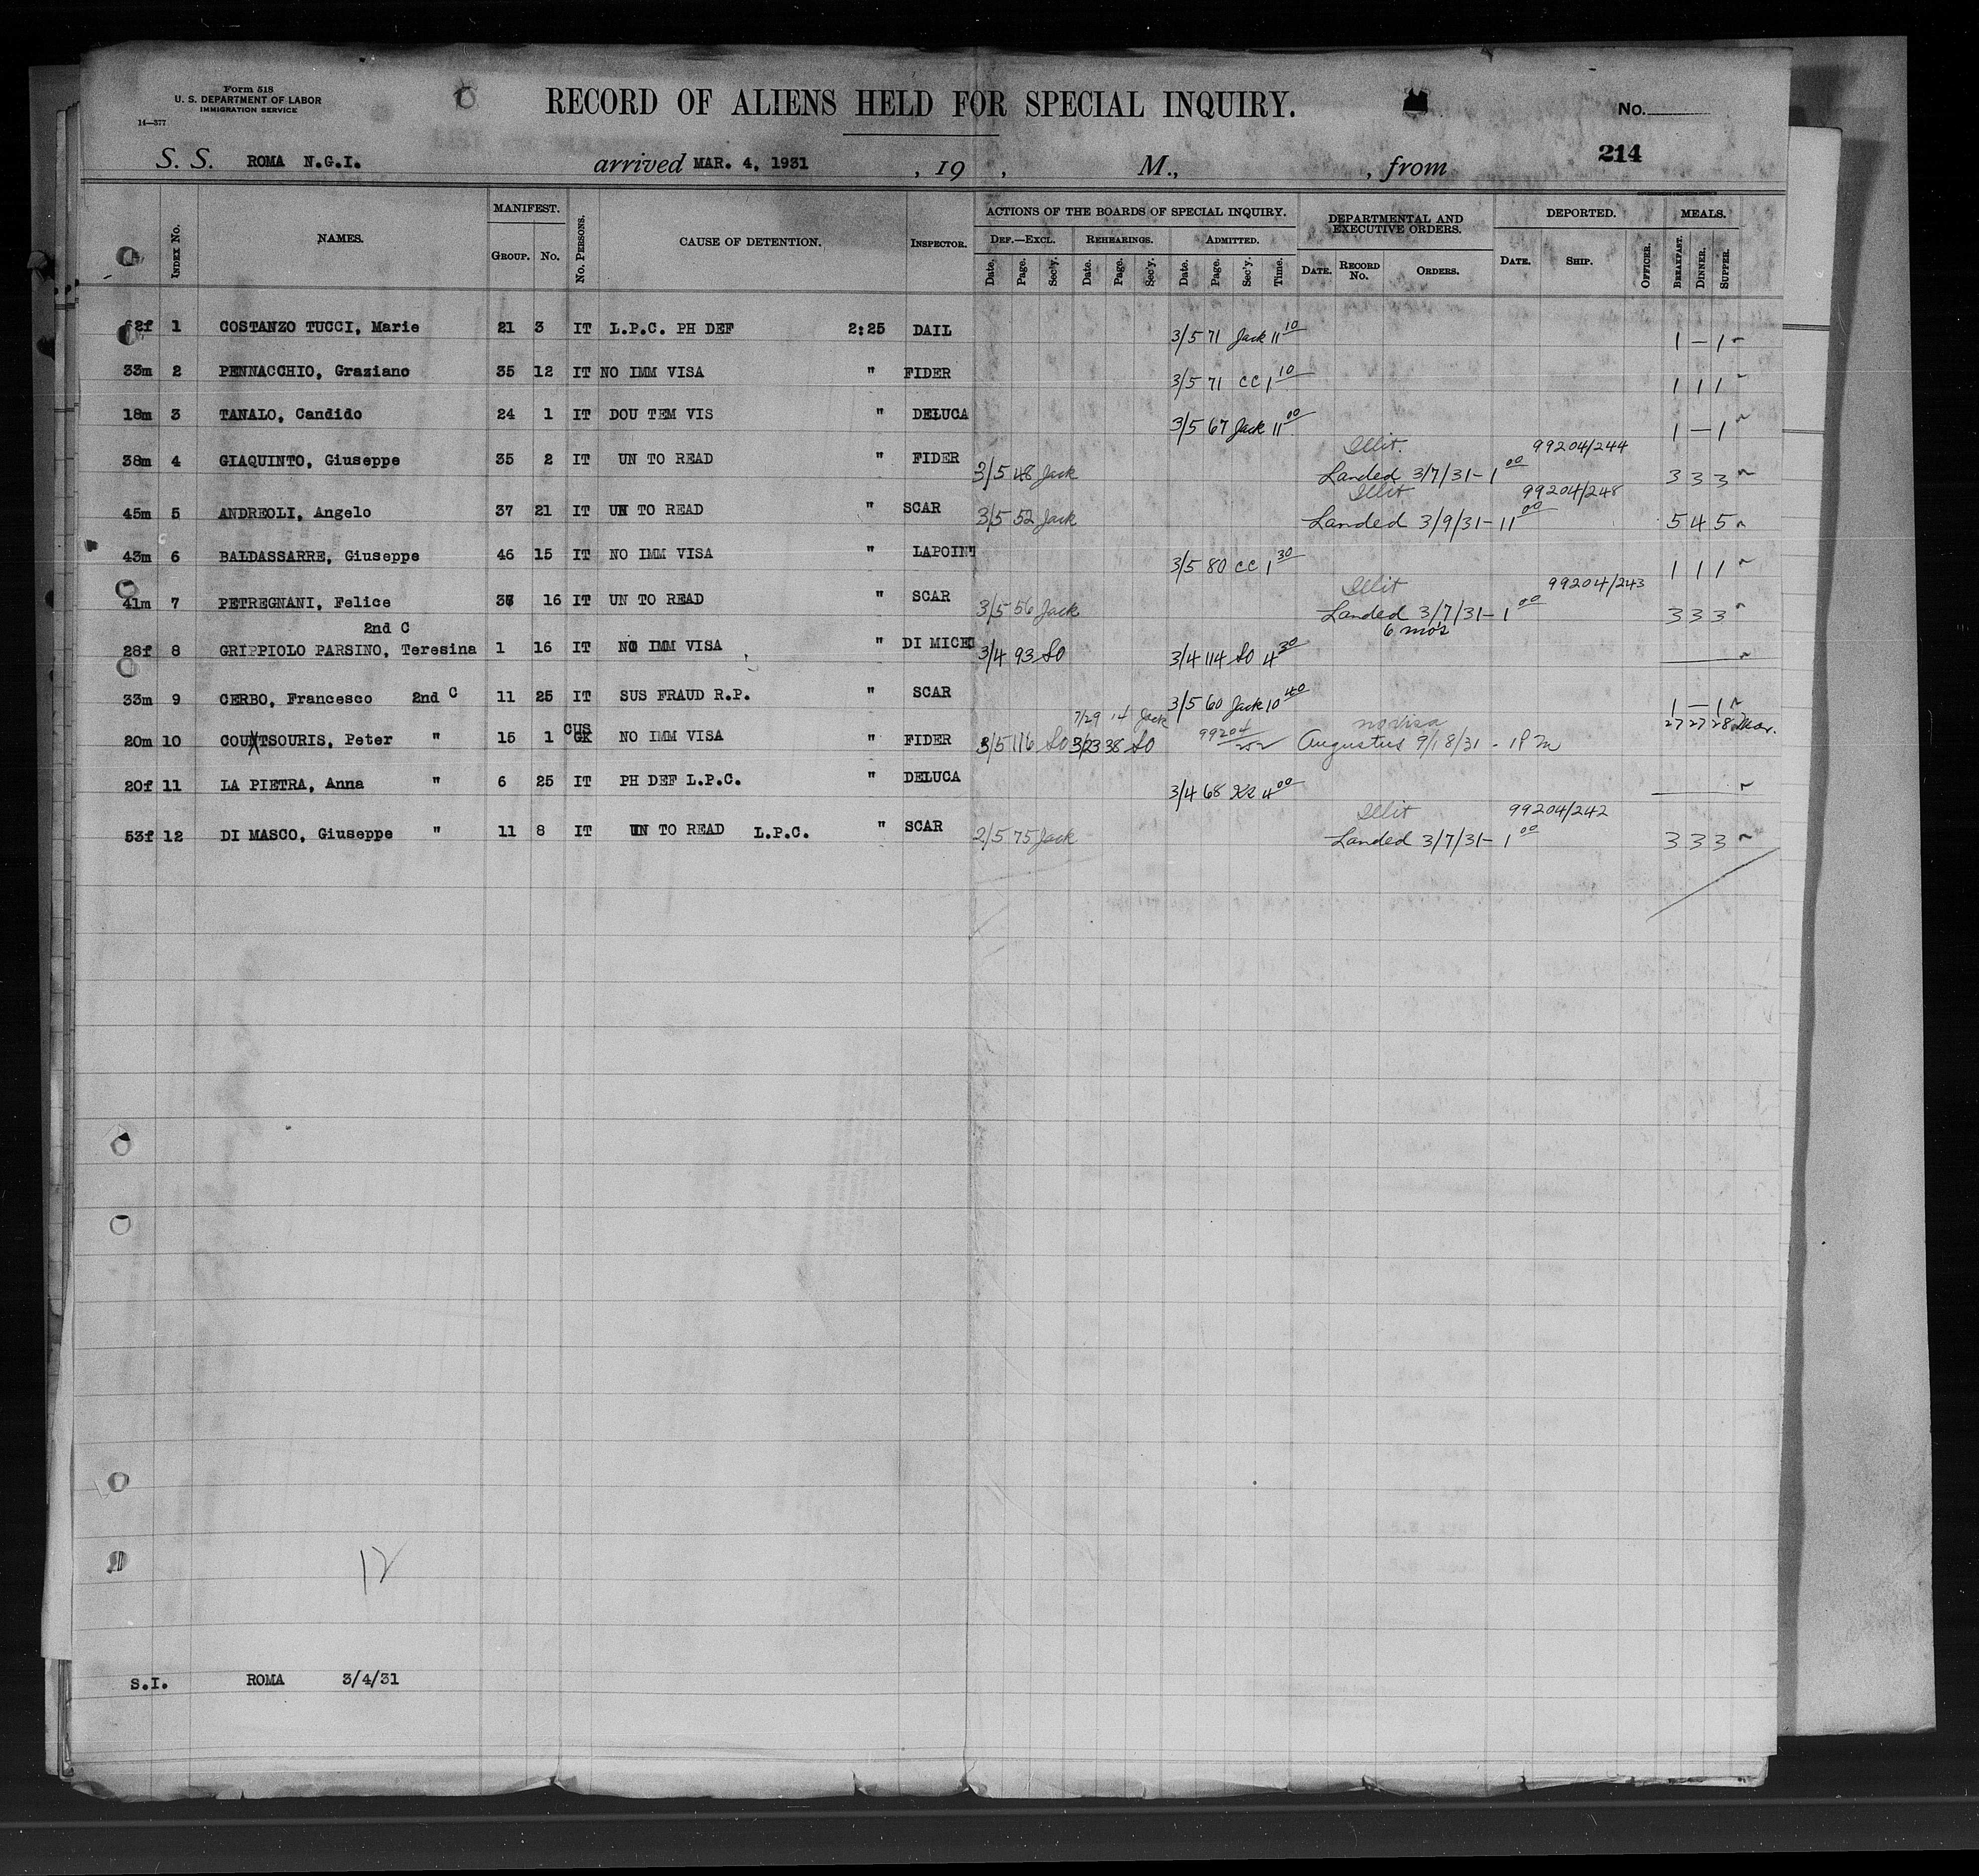 Form 518
U. S. DEPARTMENT OF LABOR
IMMIGRATION SERVICE
14—377
RECORD OF ALIENS HELD FOR SPECIAL INQUIRY.
No.
214
S. S. ROMA N.G.I. arrived MAR. 4, 1931 , 19 , M., , from
INDEX No. NAMES. MANIFEST. GROUP. No. No. PERSONS. CAUSE OF DETENTION. INSPECTOR. ACTIONS OF THE BOARDS OF SPECIAL INQUIRY. DEF.—EXCL. Date. Page. Sec'y. REHEARINGS. Date. Page. Sec'y. ADMITTED. Date. Page. Sec'y. Time. DEPARTMENTAL AND EXECUTIVE ORDERS. DATE. RECORD No. ORDERS. DEPORTED. DATE. SHIP. OFFICER. MEALS. BREAKFAST. DINNER. SUPPER.
62f 1 COSTANZO TUCCI, Marie 21 3 IT L.P.C. PH DEF 2:25 DAIL 3/5 71 Jack 11 10 1 — 1
33m 2 PENNACCHIO, Graziano 35 12 IT NO IMM VISA " FIDER 3/5 71 CC 1 10 1 1 1
18m 3 TANALO, Candido 24 1 IT DOU TEM VIS " DELUCA 3/5 67 Jack 11 00 1 — 1
Illit. 99204/244
38m 4 GIAQUINTO, Giuseppe 35 2 IT UN TO READ " FIDER 3/5 48 Jack Landed 3/7/31 - 1 00 3 3 3
Illit 99204/248
45m 5 ANDREOLI, Angelo 37 21 IT UN TO READ " SCAR 3/5 52 Jack Landed 3/9/31 - 11 00 5 4 5
43m 6 BALDASSARRE, Giuseppe 46 15 IT NO IMM VISA " LAPOINT 3/5 80 CC 1 30 1 1 1
Illit 99204/243
41m 7 PETREGNANI, Felice 16 IT UN TO READ " SCAR 3/5 56 Jack Landed 3/7/31 - 1 00 3 3 3
2nd C 6 mo's
28f 8 GRIPPIOLO PARSINO, Teresina 1 16 IT NO IMM VISA " DI MICE 3/4 93 SO 3/4 114 SO 4 30
33m 9 CERBO, Francesco 2nd C 11 25 IT SUS FRAUD R.P. " SCAR 3/5 60 Jack 10 40 1 — 1
CUS 7/29 14 Jack 99204/252 no visa 27 27 28 Mar.
20m 10 COUTSOURIS, Peter " 15 1 GK NO IMM VISA " FIDER 3/5 116 SO 3/23 38 SO Augustus 9/18/31 - 1 PM
20f 11 LA PIETRA, Anna " 6 25 IT PH DEF L.P.C. " DELUCA 3/4 68 4 00
Illit 99204/242
53f 12 DI MASCO, Giuseppe " 11 8 IT UN TO READ L.P.C. " SCAR 2/5 75 Jack Landed 3/7/31 - 1 00 3 3 3
12
S.I. ROMA 3/4/31